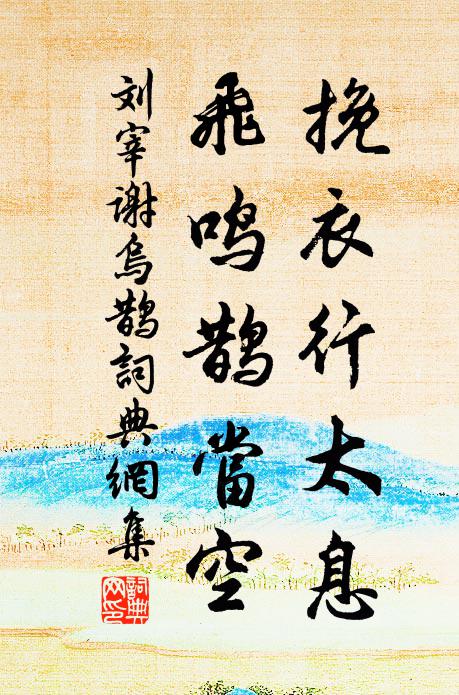 挽衣行太息
飛鸣鹊當空
刘宰谢烏鹊詞典網集
詞典